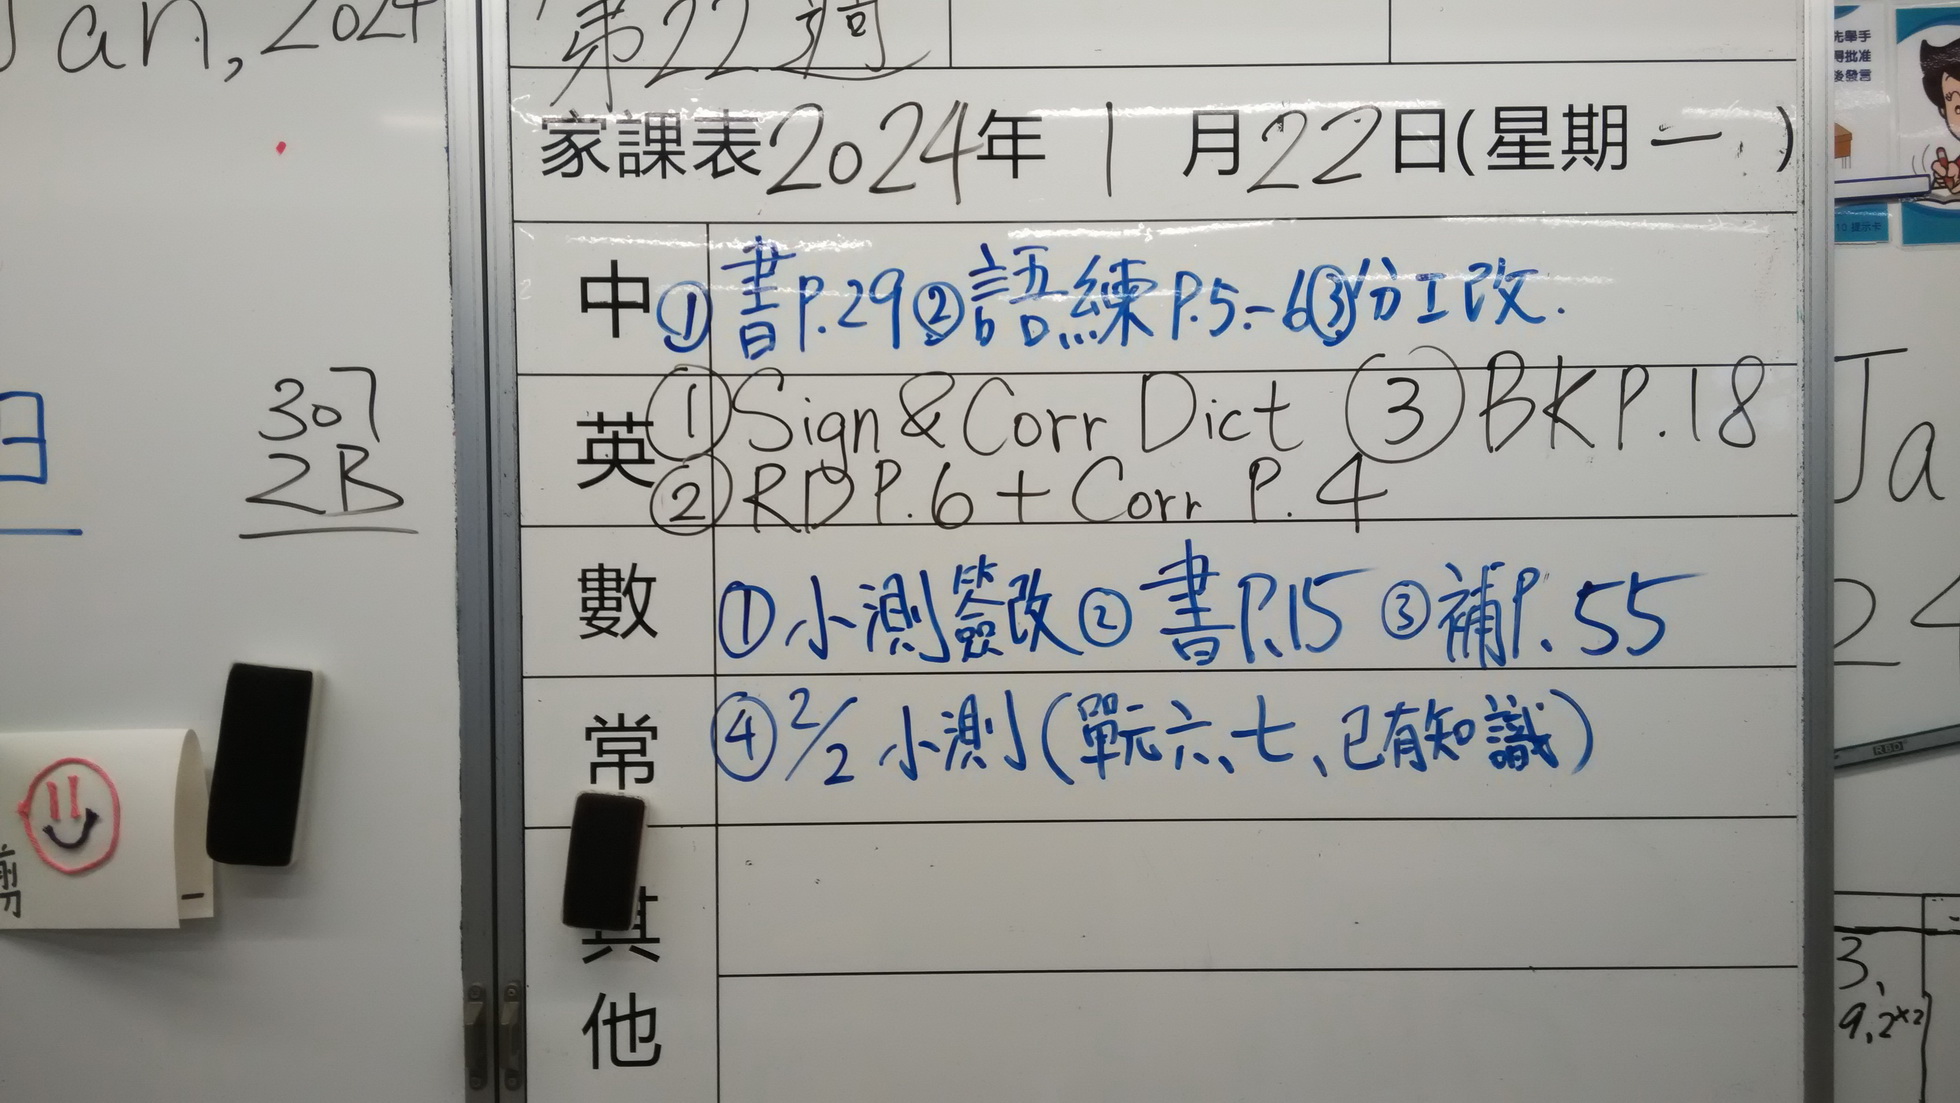 Jan, 2024
307
2B
第22週
家課表2024年1月22日(星期一)
中 ①書P.29②語練P.5-6③份工改.
英 ①Sign & Corr Dict ③BK P.18
②RD P.6 + Corr P.4
數 ①小測簽改②書P.15 ③補P.55
常 ④2/2 小測(單元六、七、已有知識)
其他
先舉手
得批准
後發言
提示卡
Ja
24
3,
9,2x2